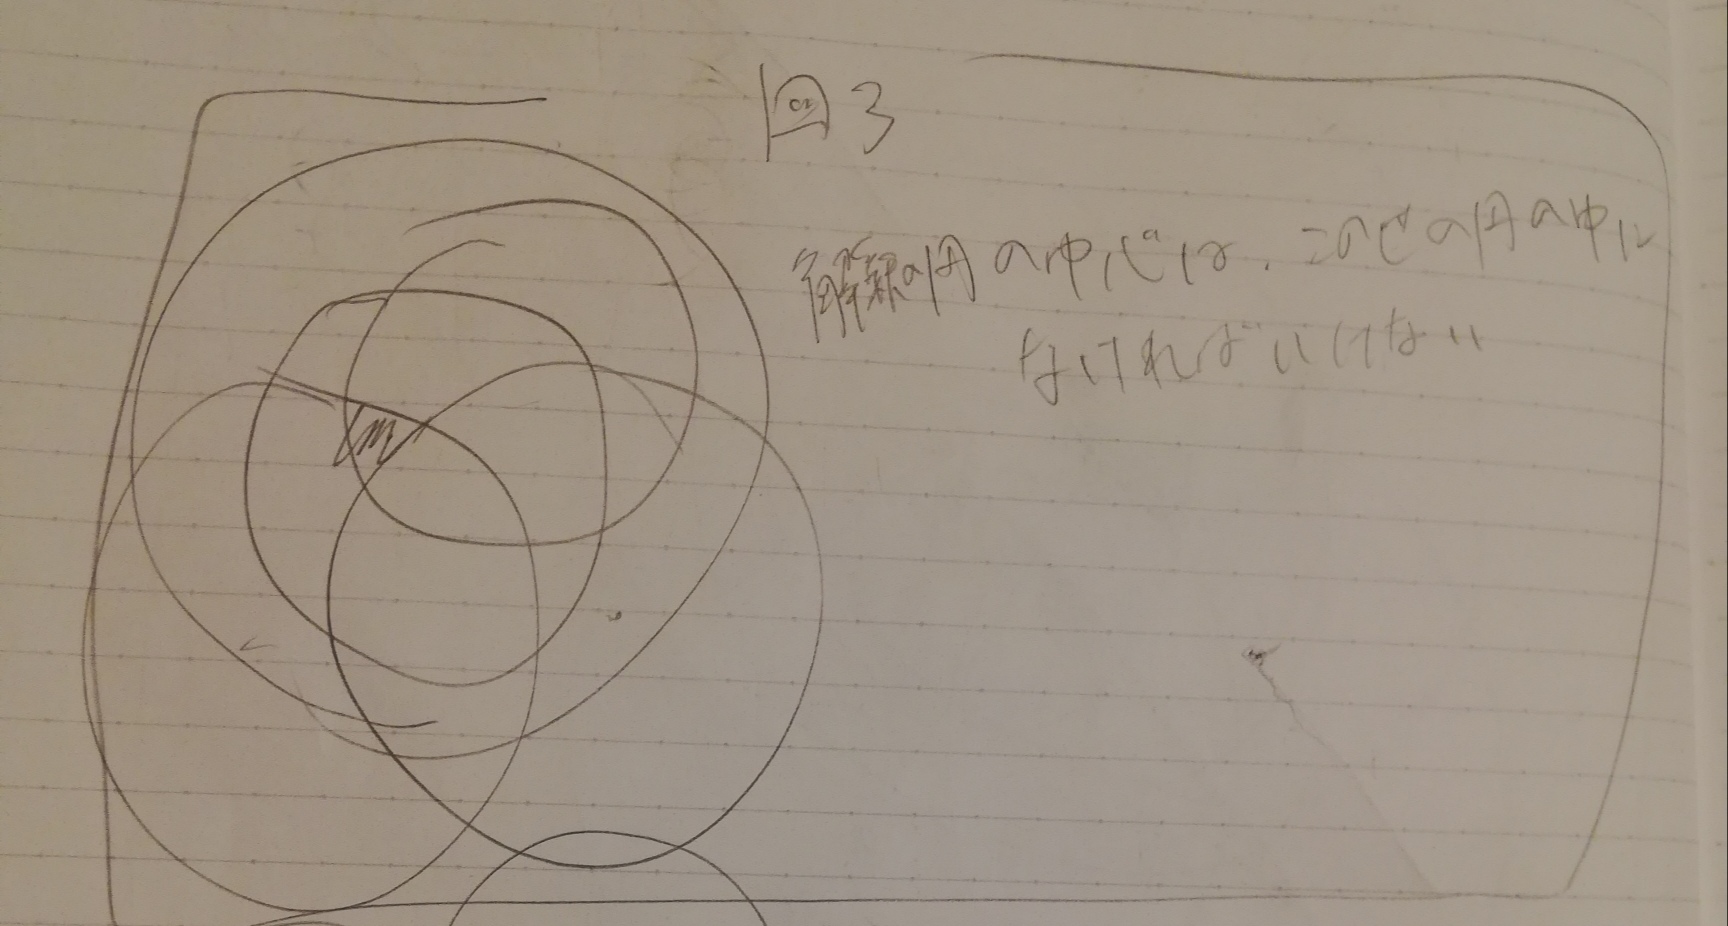 図3
解釈の円の中心は、このどの円の中に
なければいけない